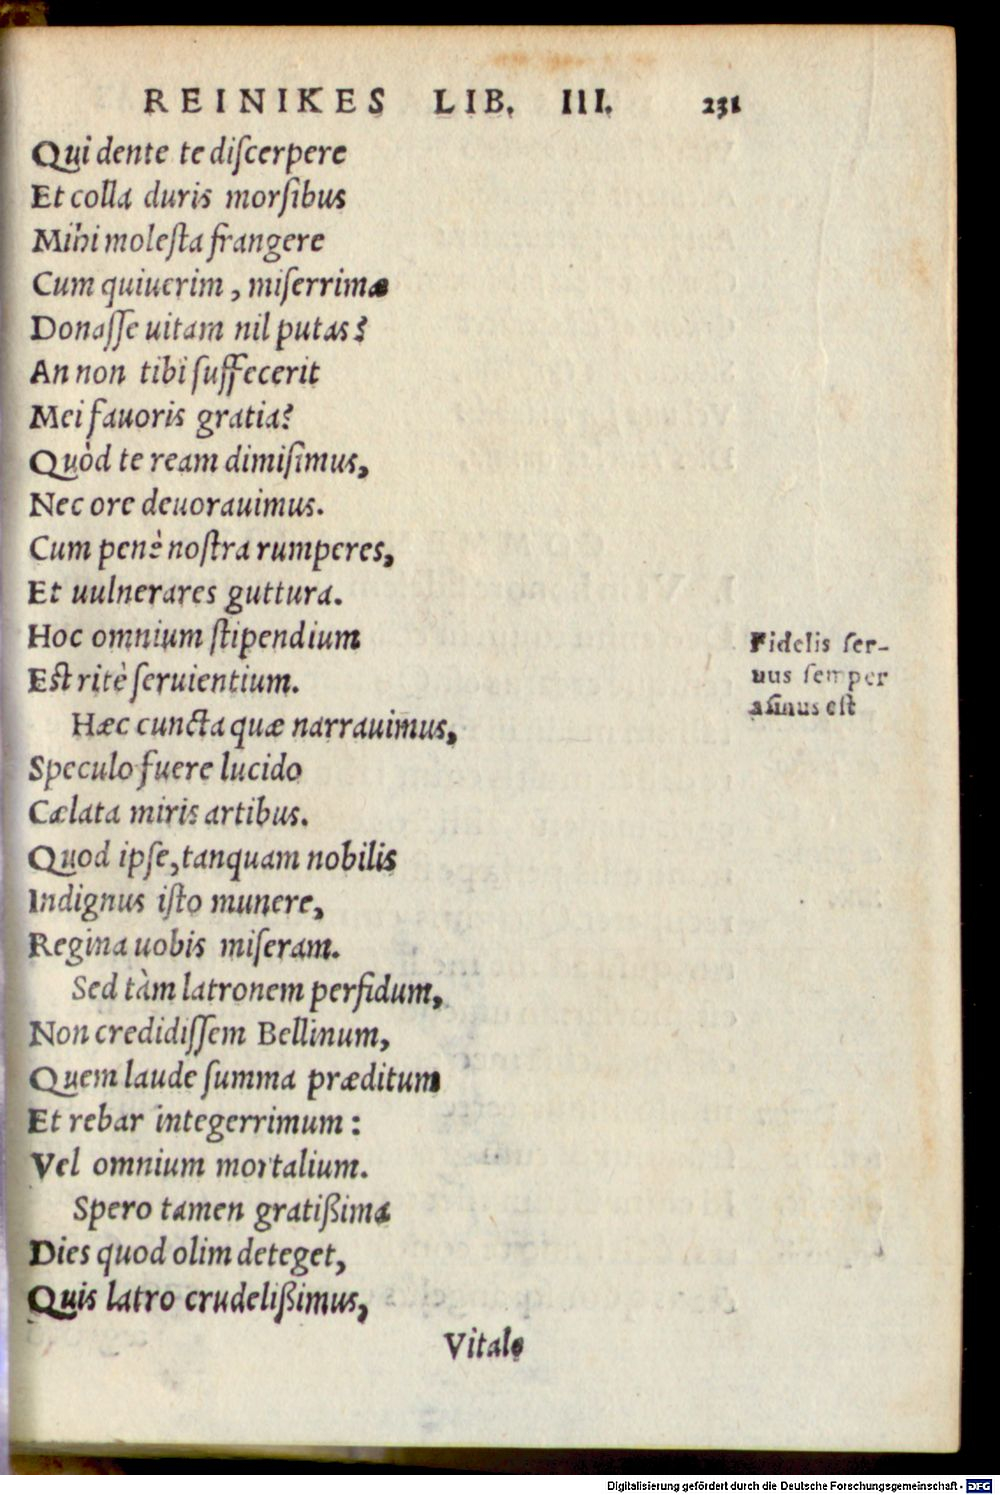 REINIKES LIB. III. 231
Qui dente te diſcerpere
Et colla duris morſibus
Mihi moleſta frangere
Cum quiuerim, miſerrimæ
Donaſſe uitam nil putas?
An non tibi ſuffecerit
Mei fauoris gratia?
Quòd te ream dimiſimus,
Nec ore deuorauimus.
Cum penè noſtra rumperes,
Et uulnerares guttura.
Hoc omnium ſtipendium
Eſt ritè ſeruientium.
Fidelis ſer-
uus ſemper
aſinus eſt
Hæc cuncta quæ narrauimus,
Speculo fuere lucido
Cælata miris artibus.
Quod ipſe, tanquam nobilis
Indignus iſto munere,
Regina uobis miſeram.
Sed tàm latronem perfidum,
Non credidiſſem Bellinum,
Quem laude ſumma præditum
Et rebar integerrimum:
Vel omnium mortalium.
Spero tamen gratißima
Dies quod olim deteget,
Quis latro crudelißimus,
Vitale
Digitalisierung gefördert durch die Deutsche Forschungsgemeinschaft - DFG